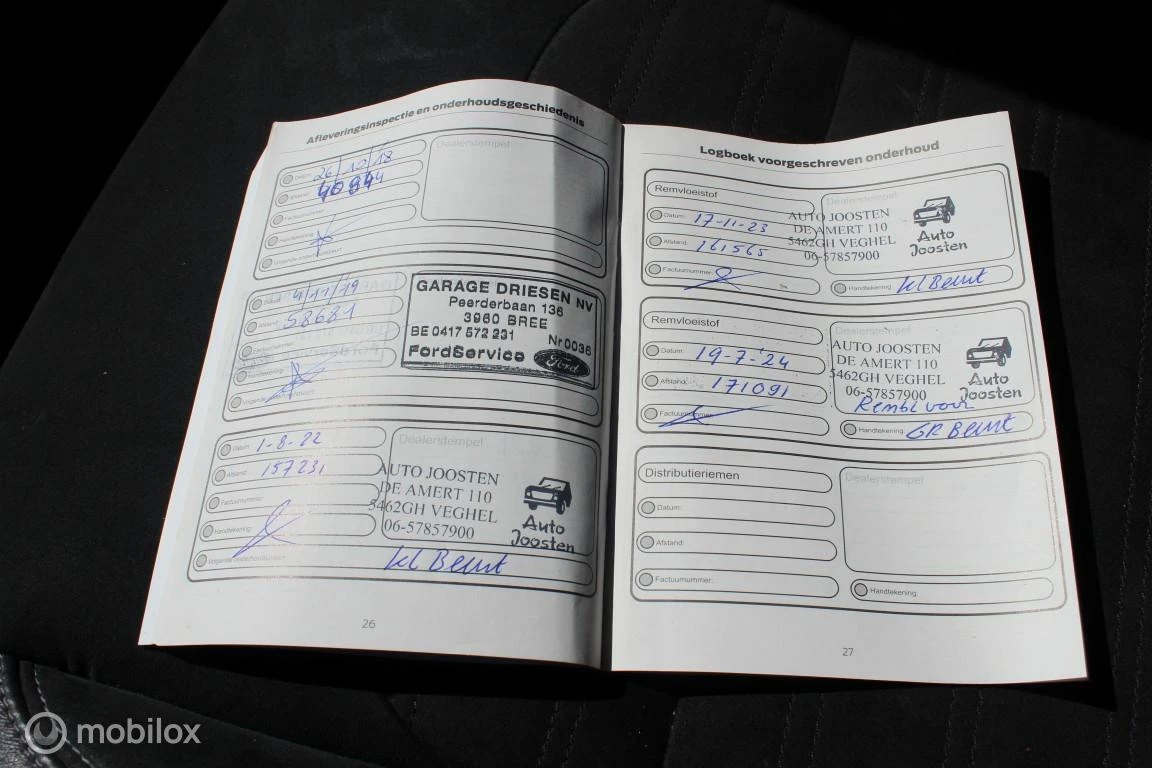 Afleveringsinspectie en onderhoudsgeschiedenis
Datum: 26/10/18
Dealerstempel
Afstand:
Factuurnummer:
Handtekening:
Datum: 4/11/19
Afstand: 58681
Factuurnummer:
Handtekening:
GARAGE DRIESEN NV
Peerderbaan 136
3960 BREE
BE 0417 572 231 Nr 0036
FordService Ford
Datum: 1-8-22
Dealerstempel
Afstand: 157231
Factuurnummer:
Handtekening:
AUTO JOOSTEN
DE AMERT 110
5462GH VEGHEL
06-57857900
Auto
Joosten
kl Beurt
26
Logboek voorgeschreven onderhoud
Remvloeistof
Dealerstempel
Datum: 17-11-23
Afstand: 161565
Factuurnummer:
AUTO JOOSTEN
DE AMERT 110
5462GH VEGHEL
06-57857900
Auto
Joosten
Handtekening: kl Beurt
Remvloeistof
Dealerstempel
Datum: 19-7-'24
Afstand: 171091
Factuurnummer:
AUTO JOOSTEN
DE AMERT 110
5462GH VEGHEL
06-57857900
Auto
Joosten
Rembl voor
Handtekening: GR Beurt
Distributieriemen
Dealerstempel
Datum:
Afstand:
Factuurnummer:
Handtekening:
27
mobilox